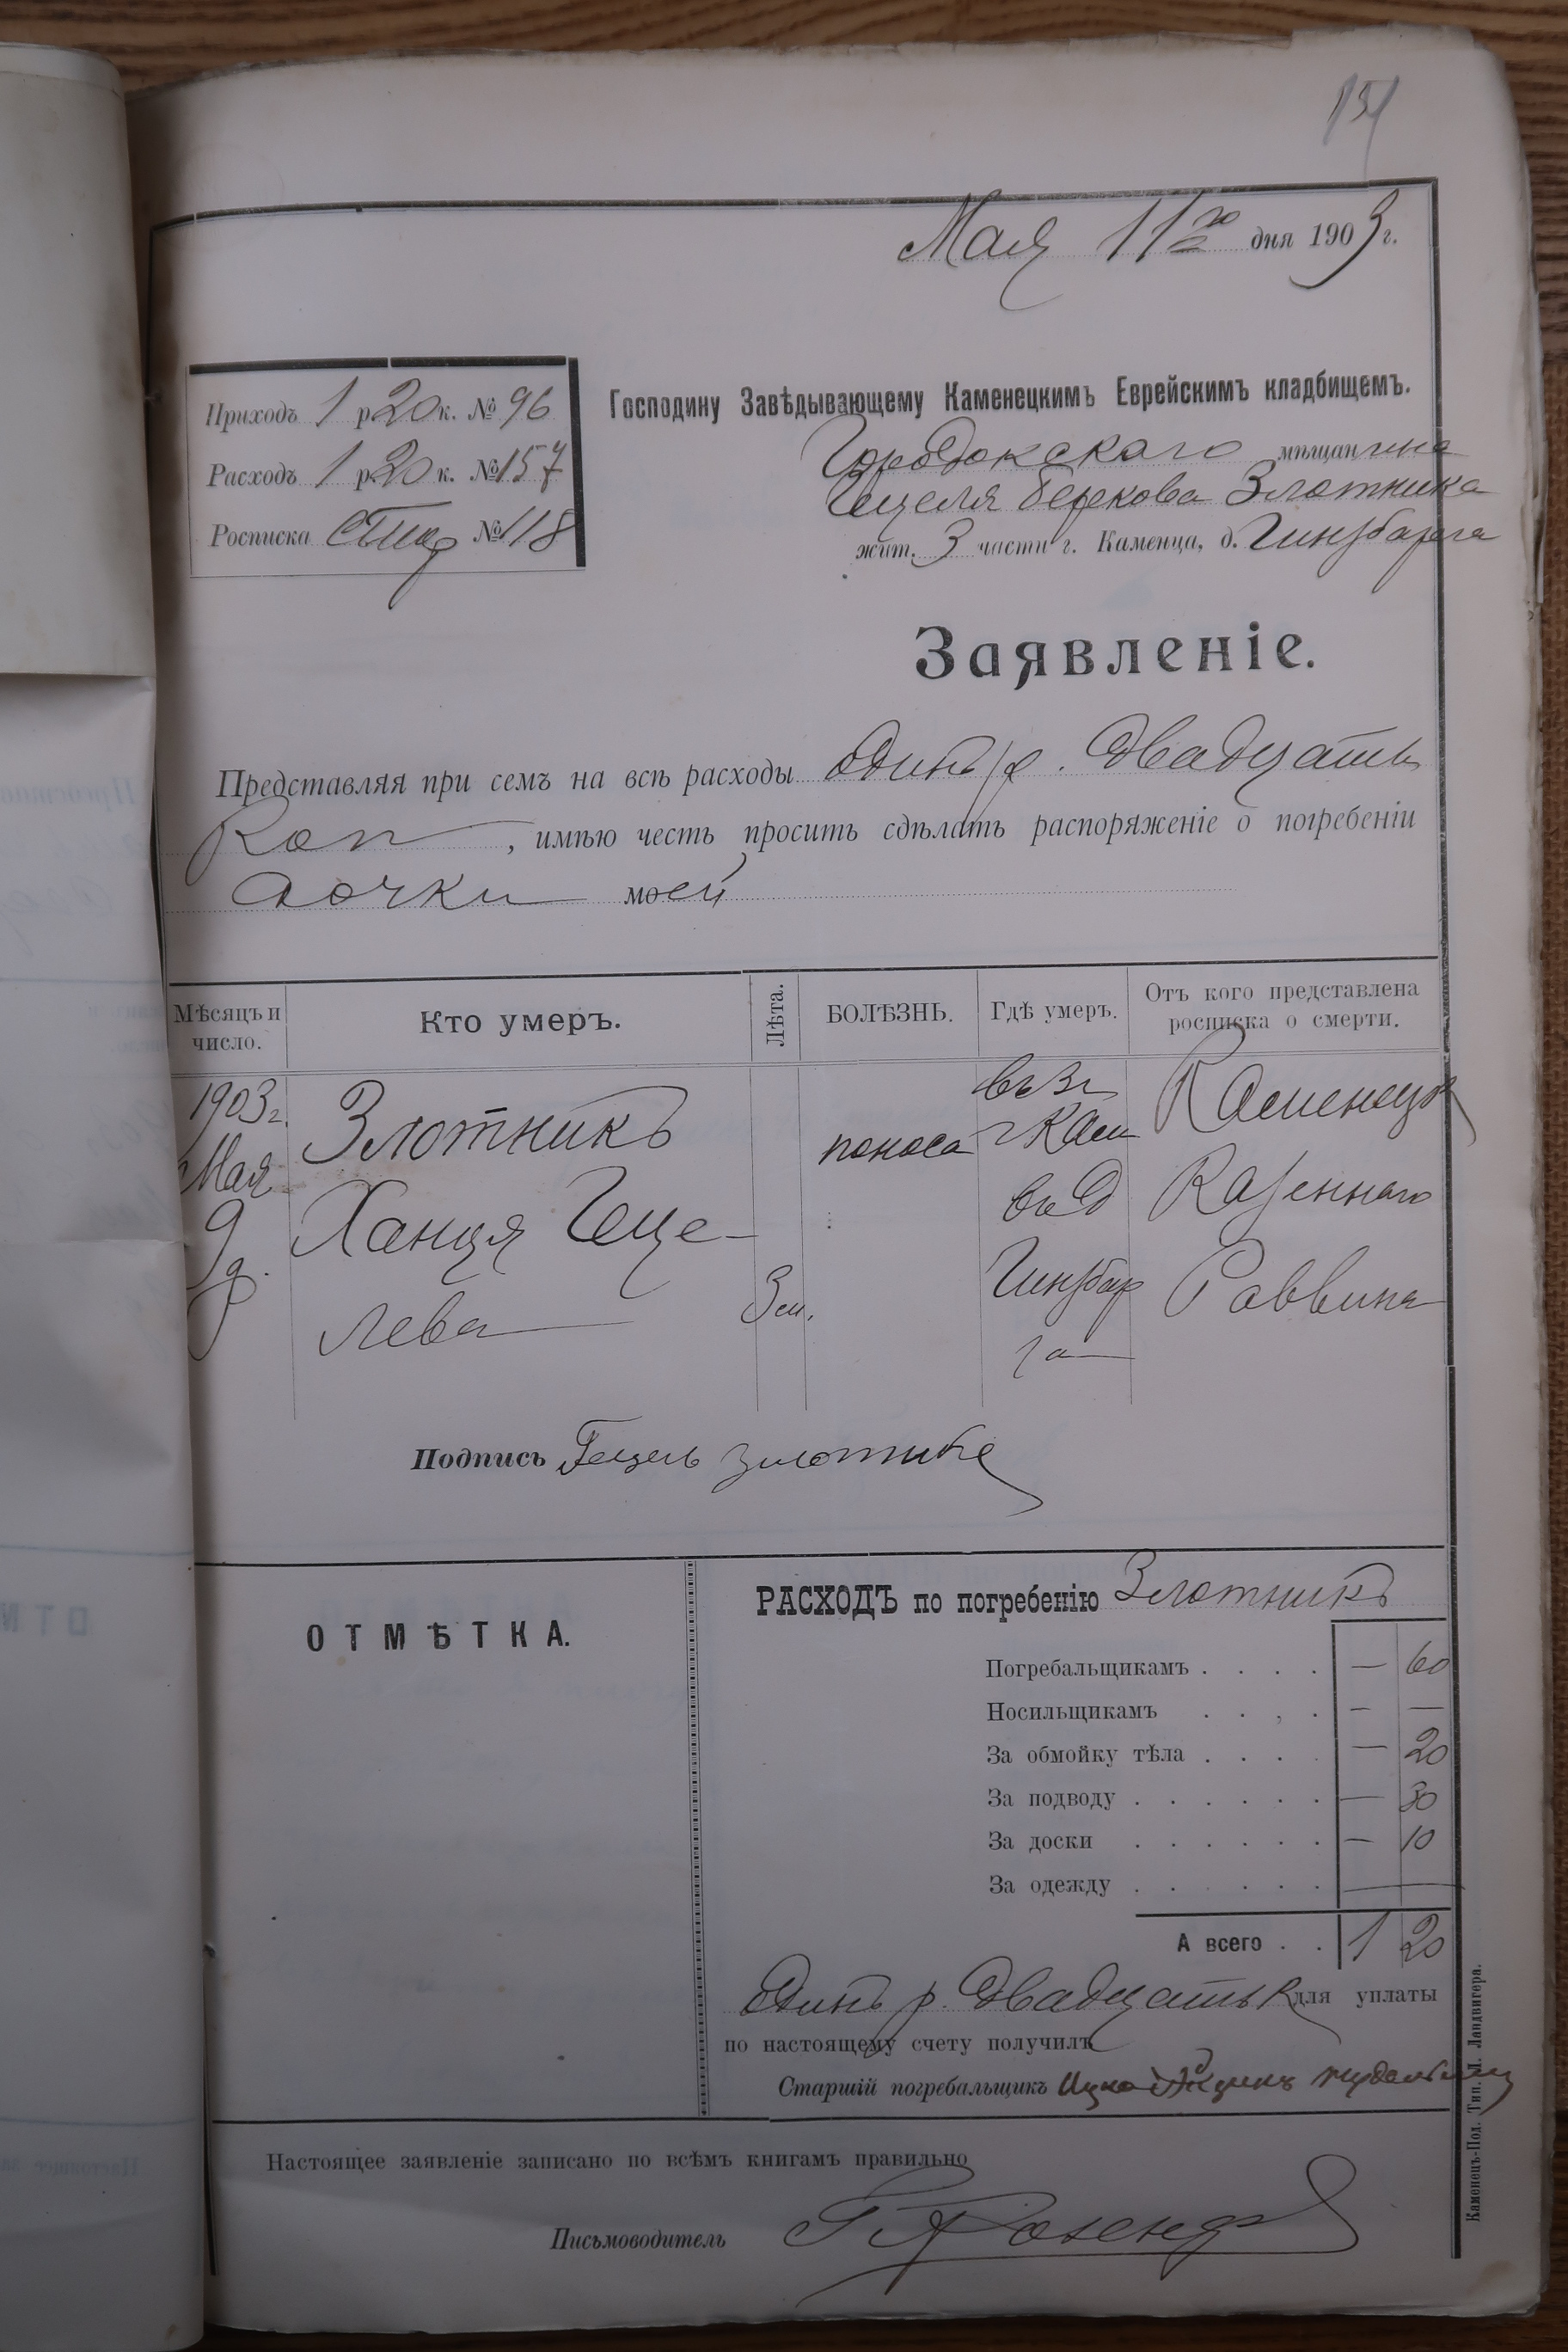 151
Мая 11го дня 1903 г.
Приходъ 1 р. 20 к. № 96
Расходъ 1 р. 20 к. № 157
Росписка № 118
Господину Завѣдывающему Каменецкимъ Еврейскимъ кладбищемъ.
Городокскаго мѣщанина
Гецеля Беркова Злотника
жит. 3 части г. Каменца, д. Гинзбарга
Заявленіе.
Представляя при семъ на всѣ расходы Одинъ р. двадцать
коп, имѣю честь просить сдѣлать распоряженіе о погребеніи
дочки моей
Мѣсяцъ и число.
Кто умеръ.
Лѣта.
БОЛѢЗНЬ.
Гдѣ умеръ.
Отъ кого представлена росписка о смерти.
1903 г.
Мая
9 д.
Злотникъ
Ханця Геце-
лева
3 м.
поноса
въ 3 ч
г Кам
въ д
Гинзбар
га
Каменецк
Казеннаго
Раввина
Подпись Гецель Злотникъ
ОТМѢТКА.
РАСХОДЪ по погребенію Злотникъ
Погребальщикамъ . . . . — 60
Носильщикамъ . . , . — —
За обмойку тѣла . . . . — 20
За подводу . . . . . . — 30
За доски . . . . . . — 10
За одежду . . . . . . —
А всего . . 1 20
Одинъ р. двадцать к для уплаты
по настоящему счету получилъ
Старшій погребальщикъ Ицко
Настоящее заявленіе записано по всѣмъ книгамъ правильно
Письмоводитель
Каменецъ-Под. Тип. Л. Ландвигера.